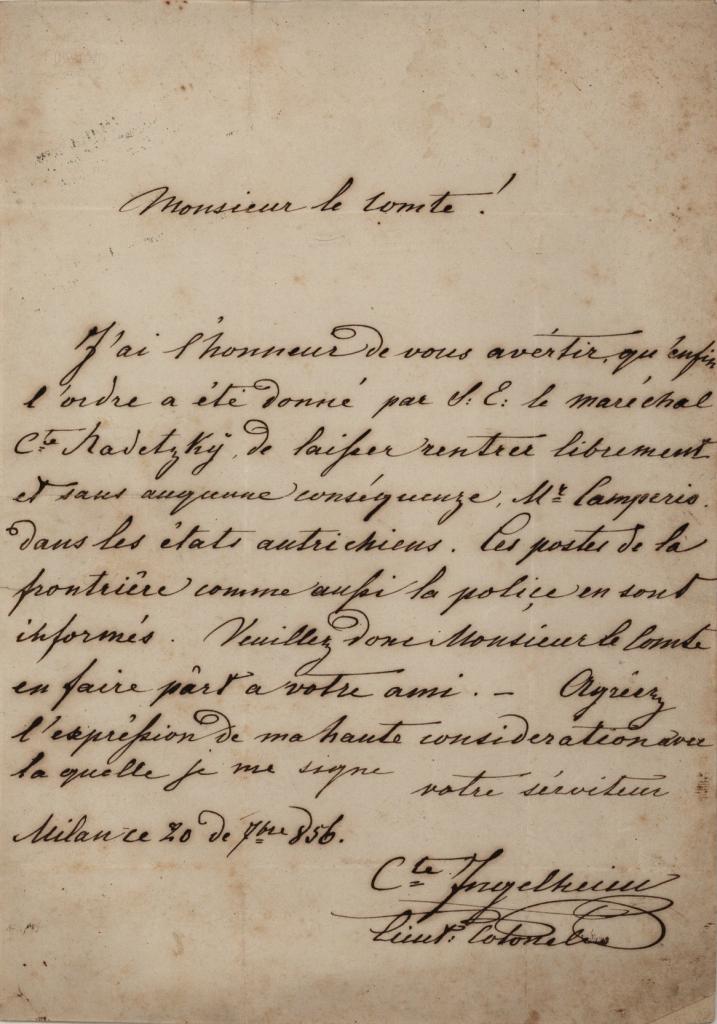 Monsieur le Comte!
J'ai l'honneur de vous avértir, qu'enfin
l'ordre a été donné par S: E: le maréchal
Cte Radetzky, de laisser rentrer librement
et sans auqueune conséquenze, Mr Camperio.
dans les états autrichiens. Les postes de la
frontriêre comme aussi la police en sont
informés. Veuillez donc Monsieur le Comte
en faire pârt a votre ami. – Agréez
l'expréssion de ma haute consideration avec
la quelle je me signe
votre sérviteur
Milan ce 20 de 7bre 856.
Cte Ingelheim
Lieut: Colonel